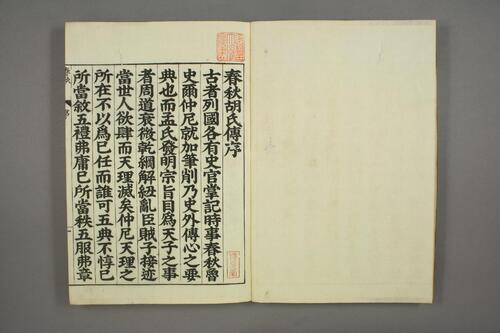 春秋胡氏傳序
古者列國各有史官掌記時事春秋魯
史爾仲尼就加筆削乃史外傳心之要
典也而孟氏發明宗旨目爲天子之事
者周道衰微乾綱解紐亂臣賊子接迹
當世人欲肆而天理滅矣仲尼天理之
所在不以爲己任而誰可五典不惇己
所當敘五禮弗庸己所當秩五服弗章